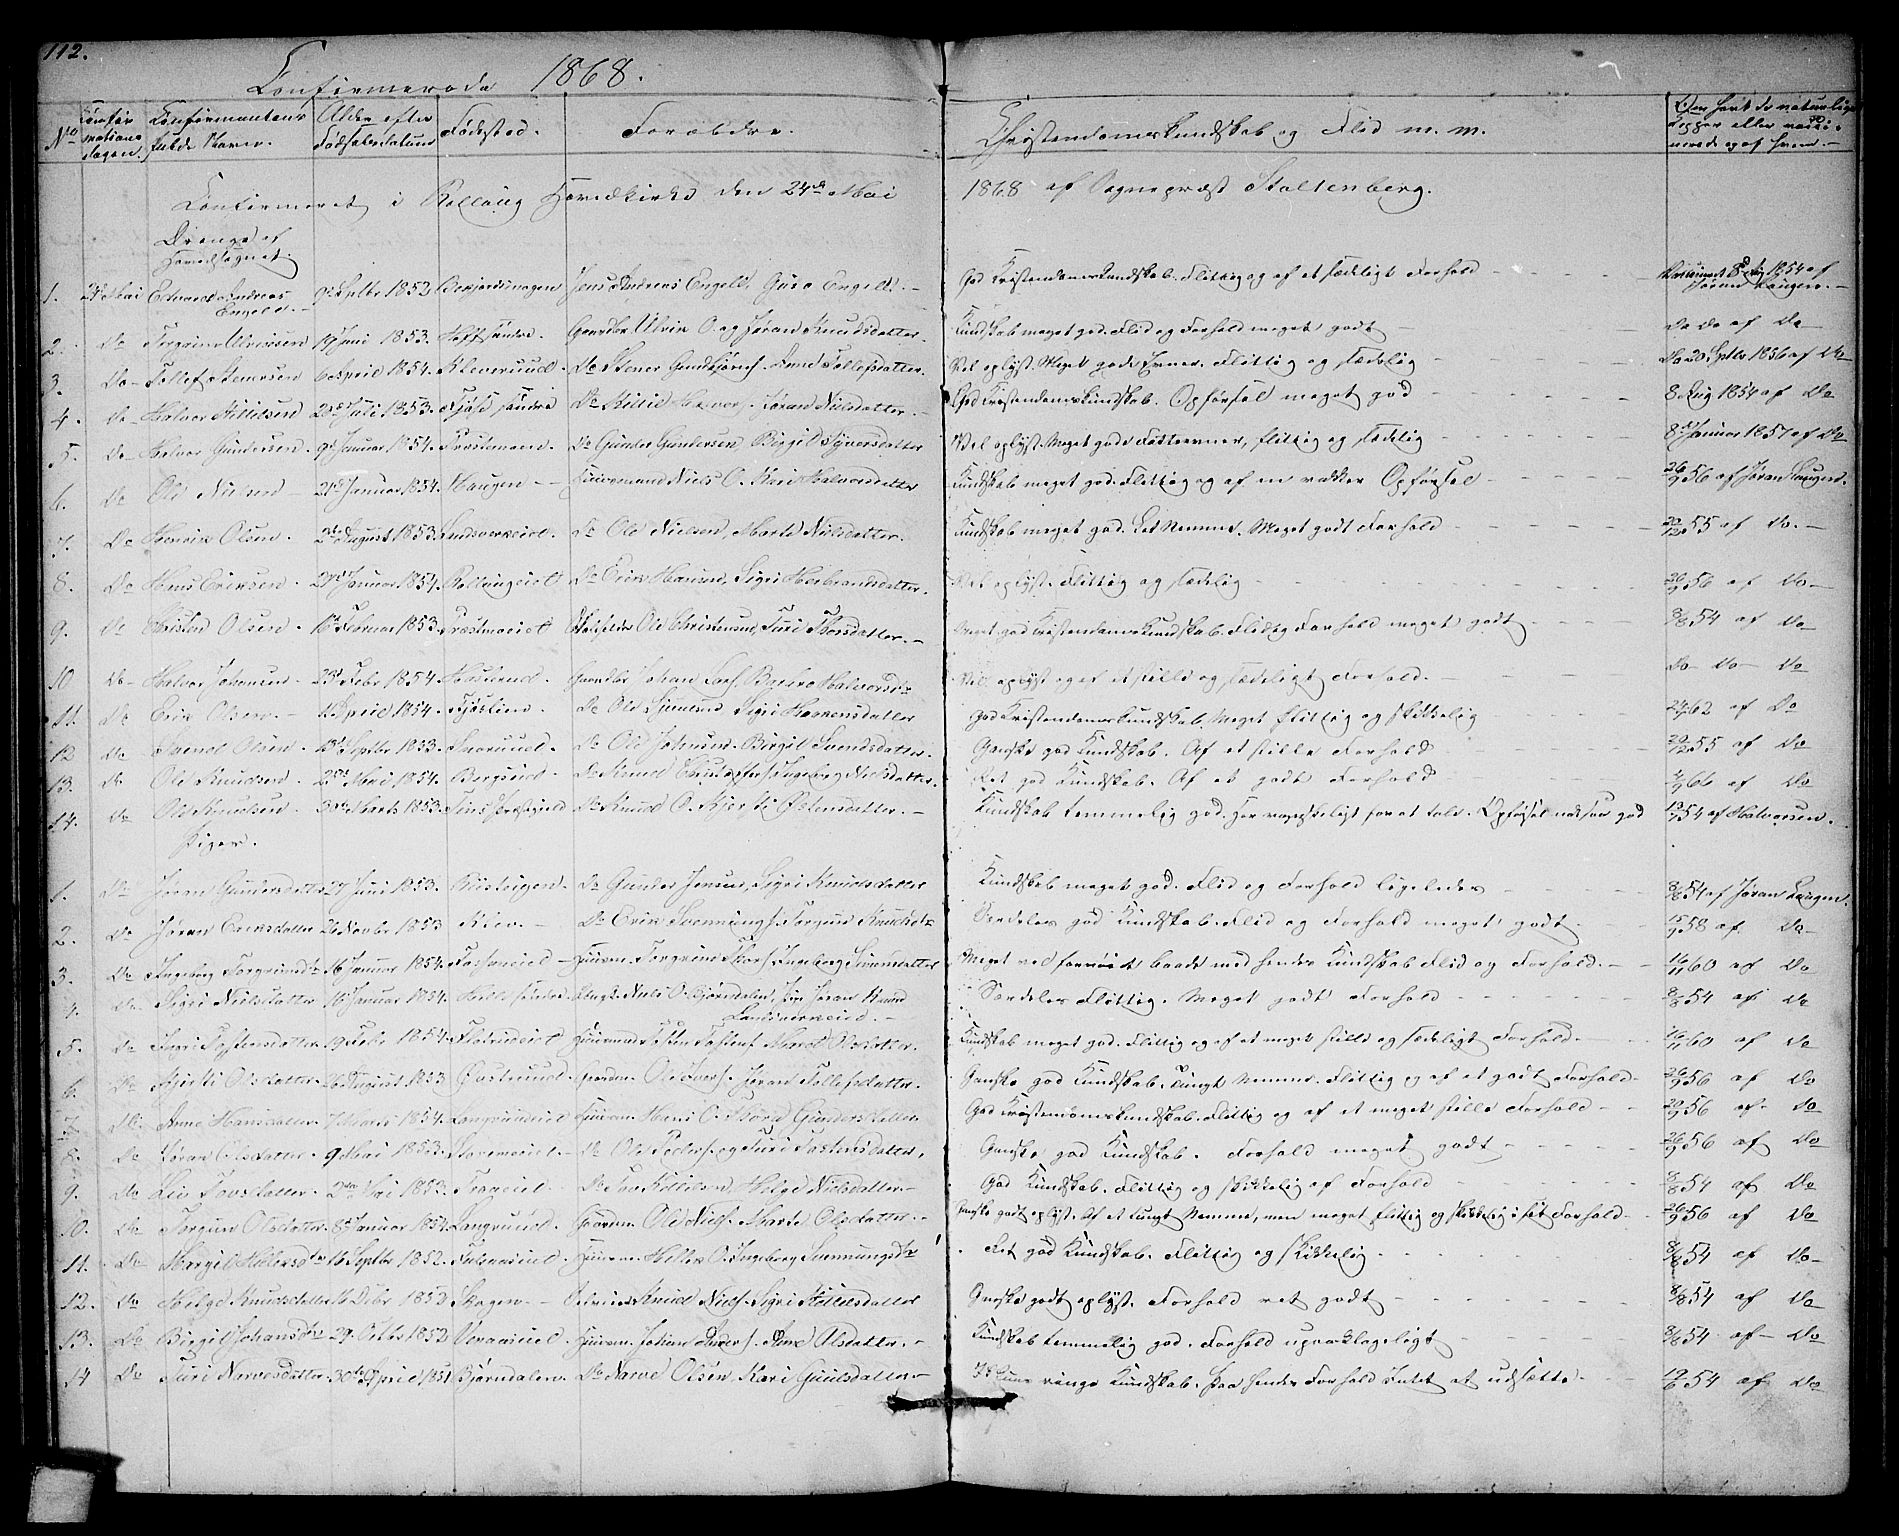 112.
Confirmerede 1868.
No Confirmationsdagen. Confirmantens fulde Navn. Alder efter Fødselsdatum Fødested. Forældre. Christendomskundskab og Flid m. m. Om havt de naturlige Kopper eller vaccinerede og af hvem.
Confirmeret i Rollaug Hovedkirke den 24de Mai 1868 af Sognepræst Stoltenberg.
Drenge af Hovedsognet.
1. 24de Mai Edvard Andreas Engell. 9de Septbr 1852 Jens Andreas Engell, Guro Engell. God Kristendomskundskab. Flittig og af et sædeligt Forhold Vaccineret 8 Aug 1854 af Jøran Laugen.
2. Do Torgrim Ulriksen 19 Juni 1853. Gaardbr Ulrik O. og Jøran Knudsdatter. Kundskab meget god. Flid og Forhold meget godt Do Do af Do
3. Do Tollef Stenersen 6 April 1854. Kleverud. Do Stener Gundbjørns. Anne Tollefsdatter. Vel oplyst. Meget gode Evner. Flittig og sædelig Do 20 Septbr 1856 af Do
4. Do Halvor Killielsen 20de Juli 1853. Do Killiel Halvors. Jøran Nielsdatter. God Kristendomskundskab. Opførsel meget god 8. Aug 1854 af Do
5. Do Halvor Gundersen 9de Januar 1854. Do Gunder Gundersen, Birgit Syversdatter Vel oplyst. Meget gode Fatteevner, flittig og sædelig 8de Januar 1857 af Do
6. Do Ole Nielsen 21de Januar 1854. Haugen Huusmand Niels O. Kari Halvorsdatter Kundskab meget god. Flittig og af en vakker Opførsel 26/9 56 af Jøran Laugen.
7. Do Henrik Olsen. 2de August 1853. Landsverkeiet. Do Ole Nielsen, Marte Nielsdatter. Kundskab meget god. Let Nemme. Meget godt Forhold 20/12 55 af Do
8. Do Hans Eriksen. 27de Januar 1854. Rollaugeiet Do Erik Hansen, Sigri Herbrandsdatter. Vel oplyst. Flittig og sædelig 26/9 56 af Do
9. Do Christen Olsen. 16de Februar 1853. Ole Christensen, Turi Thorsdatter. Meget god Kristendomskundskab. Flittig Forhold meget godt 8/8 54 af Do
10 Do Halvor Johansen 23de Febr 1854. Gaardbr Johan Lars. Halvorsdtr Vel oplyst og af et stille og sædeligt Forhold. Do Do Do
11. Do Erik Olsen. April 1854. Fjøslien. Do Ole Simensen Sigri Haakensdatter God Kristendomskundskab Meget flittig og skikkelig 62 af Do
12 Do Svend Olsen 23de Septbr 1853. Do Ole Johnsen. Birgit Svendsdatter. Ganske god Kundskab. Af et stille Forhold 20/12 55 af Do
13. Do Ole Knudsen 23de Mai 1854. Bergseiet. Do Knud Christoffers. Ingeborg Nielsdatter. Ret god Kundskab. Af et godt Forhold 66 af Do
14. Do Ole Knudsen. 3die Marts 1853. Do Knud O. Kjersti Østensdatter. Kundskab temmelig god. Opførsel god 54 af Halvorsen.
Piger.
1. Do Jøran Gundersdatter 27 Juni 1853. Do Gunder Jensen, Sigri Knudsdatter Kundskab meget god. Flid og Forhold ligeledes 8/8 54 af Jøran Laugen.
2. Do Jøran Eriksdatter 26 Novbr 1853 Klev. Do Erik Svennings. Torgun Knudsdtr Særdeles god Kundskab. Flid og Forhold meget godt 15/9 58 af Do
3. Do Ingeborg Torgrimsdtr 16 Januar 1854. Huusm. Torgrim Thors. Ingeborg Simensdatter Meget vel fornøiet baade med hendes Kundskab Flid og Forhold. 16/11 60 af Do
4. Do Sigri Nielsdatter 16 Januar 1854. Niels O. Bjørndalen, Pige Jøran Knuds Landsverkeiet. Særdeles Flittig. Meget godt Forhold 8/8 54 af Do
5. Do Ingri Tostensdatter. 19 Febr 1854. Huusmand Tosten Tostens. Olsdatter. Kundskab meget god. Flittig og af et meget stille og sædeligt Forhold. 16/11 60 af Do
6. Do Kjersti Olsdatter. 26 August 1853 Gaardm. Ole Ivers. Jøran Tollefsdatter. Ganske god Kundskab. Tungt Nemme. Flittig og af et godt Forhold. 26/9 56 af Do
7. Do Anne Hansdatter. 7 Marts 1854. Langrudeiet Huusm. Hans O. Gundersdatter. God Kristendomskundskab. Flittig og af et meget stille Forhold 26/9 56 af Do
8. Do Jøran Olsdatter. 9 Mai 1853. Do Ole Peders. og Turi Tostensdatter. Ganske god Kundskab. Forhold meget godt 26/9 56 af Do
9. Do Liv Tovsdatter. 2den Mai 1853. Do Tov Killielsen, Helge Nielsdatter God Kundskab. Flittig og skikkelig af Forhold 8/8 54 af Do
10. Do Torgun Olsdatter. 8de Januar 1854. Langrud. Gaardm. Ole Niels. Marte Olsdatter. Ganske godt oplyst. Af et tungt Nemme, men meget flittig og skikkelig i sit Forhold. 26/9 56 af Do
11. Do Margit Hellersdtr 16 Septbr 1852. Huusm. Helleck O. Ingeborg Svenningsdtr Ret god Kundskab. Flittig og skikkelig. 8/8 54 af Do
12. Do Helge Knudsdatter 16 Decbr 1853 Skogen. Knud Niels. Sigri Killielsdatter Ganske godt oplyst. Forhold ret godt 8/8 54 af Do
13. Do Birgit Johansdtr 29. Octbr 1852 Huusm. Johan Anders. Anne Olsdatter. Kundskab temmelig god. Forhold upaaklageligt 8/8 54 af Do
14 Do Turi Narvesdatter. 30te April 1851 Bjørndalen. Do Narve Olsen, Kari Guulsdatter ringe Kundskab. Paa hendes Forhold Intet at udsætte. 19/6 54 af Do